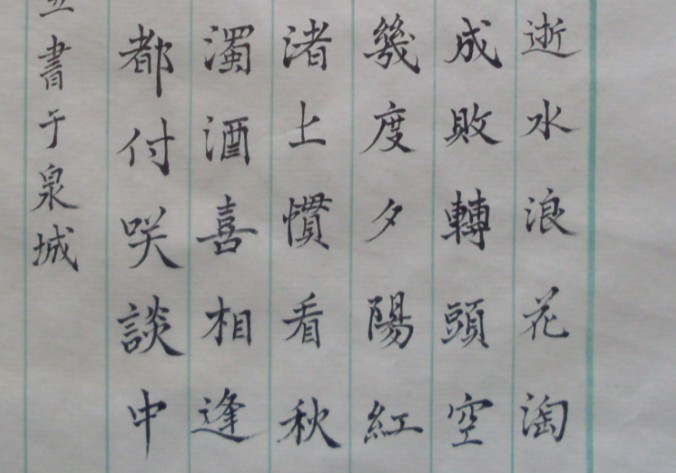 逝水浪花淘
成敗轉頭空
幾度夕陽紅
渚上慣看秋
濁酒喜相逢
都付咲談中
書于泉城